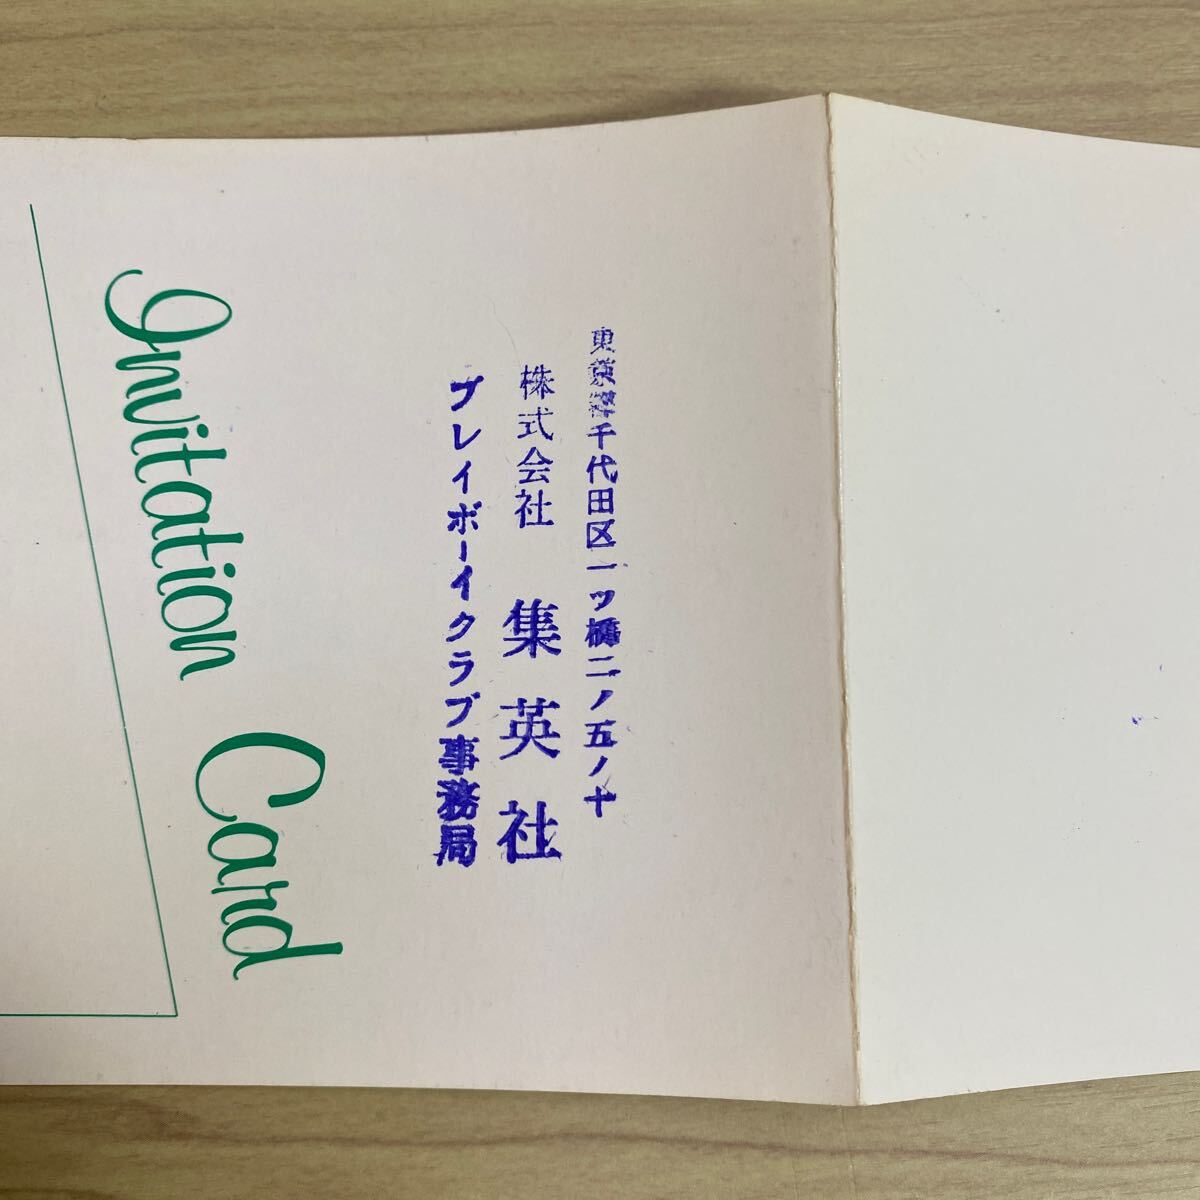 東京都千代田区一ツ橋二ノ五ノ十
株式会社 集英社
プレイボーイクラブ事務局
Invitation Card